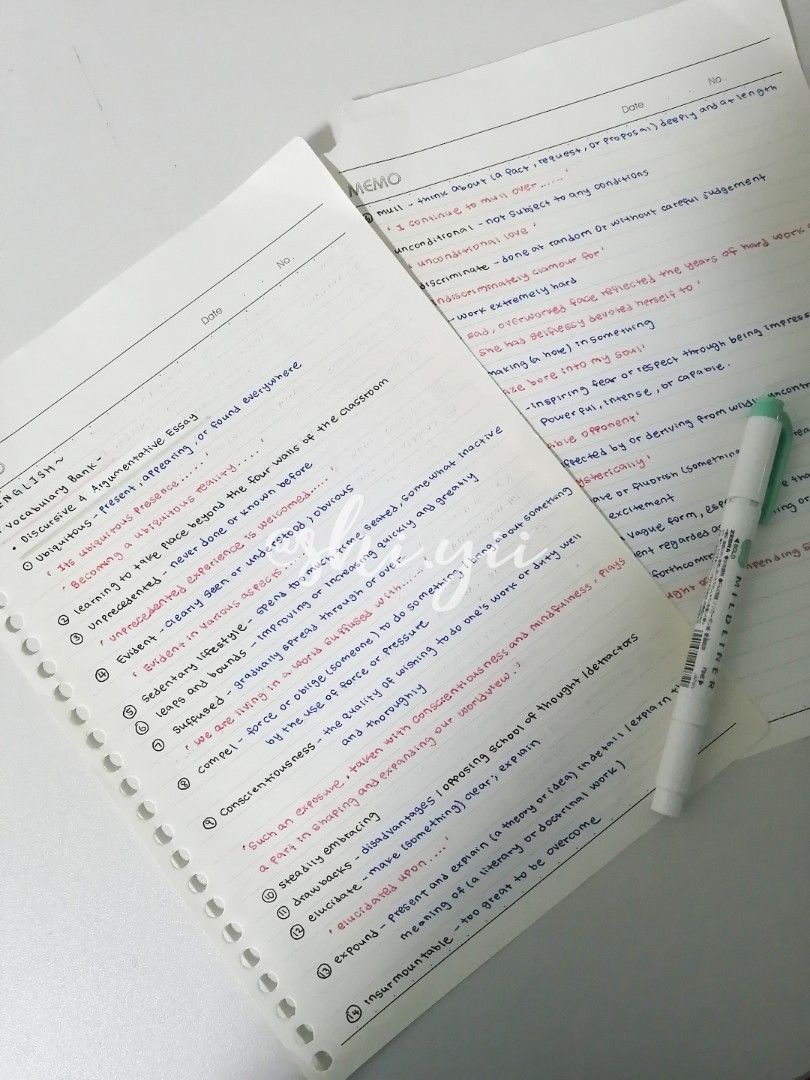 Date
No
ENGLISH~
• Vocabulary Bank-
• Discursive & Argumentative Essay
① Ubiquitous - present, appearing, or found everywhere
' Its ubiquitous presence......'
' Becoming a ubiquitous reality.....'
② learning to take place beyond the four walls of the classroom
③ Unprecedented - never done or known before
' unprecedented experience is welcomed....'
④ Evident - clearly seen or understood ; obvious
' Evident in various aspects
⑤ sedentary lifestyle - spend too much time seated, somewhat inactive
⑥ leaps and bounds - improving or increasing quickly and greatly
⑦ suffused - gradually spread through or over
' we are living in a world suffused with.....
⑧ compel - force or oblige (someone) to do something | bring about something
by the use of force or pressure
⑨ conscientiousness - the quality of wishing to do one's work or duty well
and thoroughly
' such an exposure, taken with conscientiousness and mindfulness, plays
a part in shaping and expanding our worldview.'
⑩ steadily embracing
⑪ drawbacks - disadvantages / opposing school of thought / detractors
⑫ elucidate - make (something) clear ; explain
' elucidated upon ....'
⑬ expound - present and explain (a theory or idea) in detail | explain
meaning of (a literary or doctrinal work)
⑭ insurmountable - too great to be overcome
Date
No
MEMO
mull - think about (a fact, request, or proposal) deeply and at length
' I continue to mull over ......'
unconditional - not subject to any conditions
' unconditional love '
discriminate - done at random or without careful judgement
ndiscriminately clamour for'
- work extremely hard
sad, overworked face reflected the years of hard work
she has selflessly devoted herself to '
making (a hole) in something
ze bore into my soul'
- inspiring fear or respect through being impress
powerful, intense, or capable.
able opponent'
ffected by or deriving from wildly uncontr
ysterically'
ave or flourish (something
excitement
vague form, esp
ent regarded as
forthcoming
@shi.yii
MILDLINER